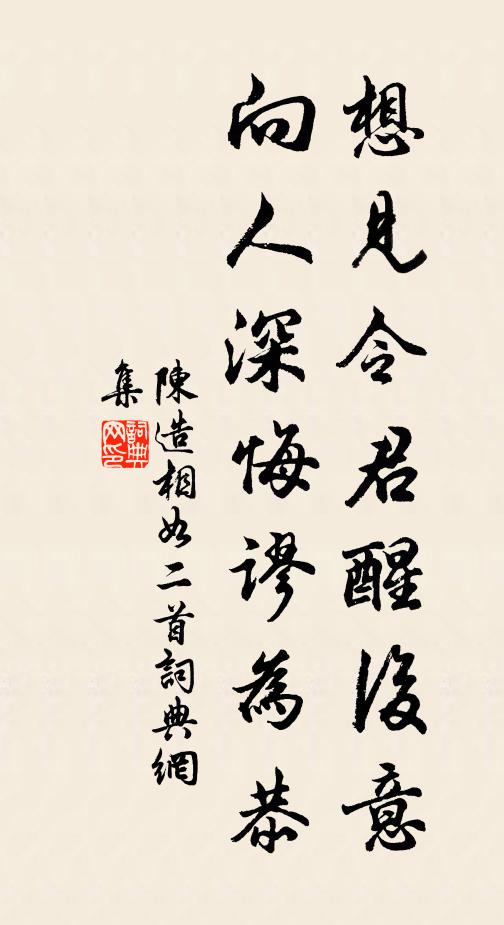 想見令君醒後意
向人深悔謬為恭
陳造相如二首詞典網
集
詞典
网印